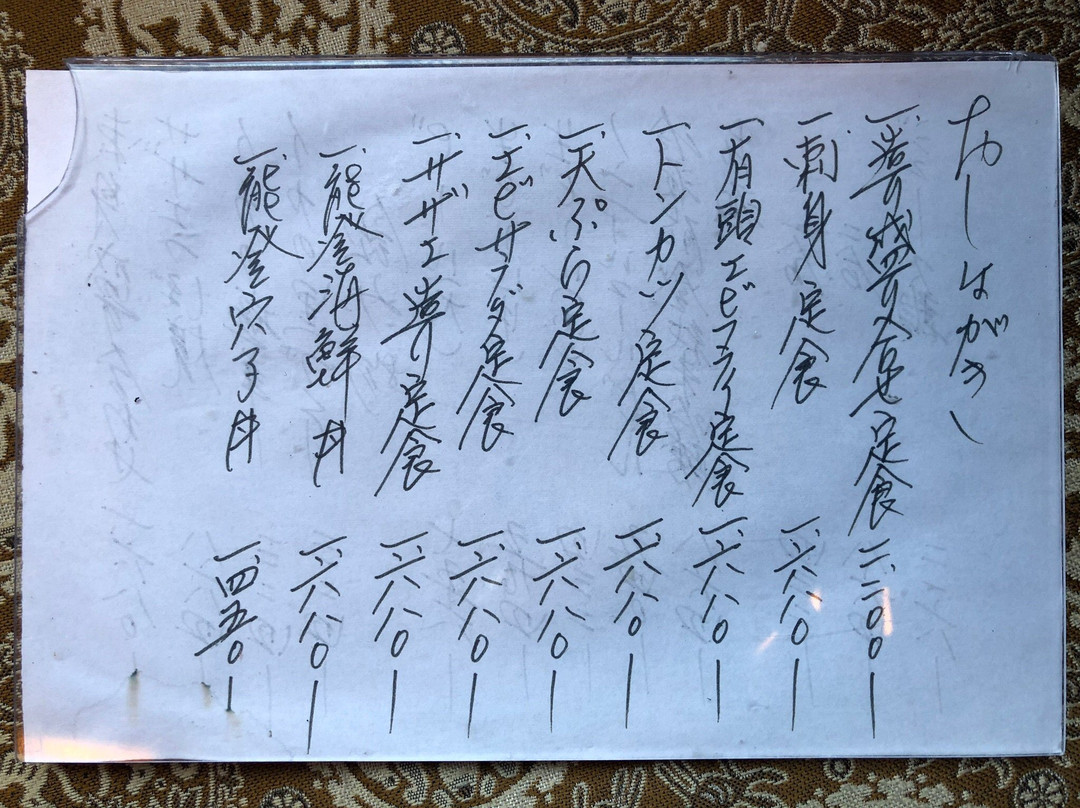 おしながき
一、造り盛り合せ定食 二、二〇〇ー
一、刺身定食 一、六八〇ー
一、有頭エビフライ定食 一、六八〇ー
一、トンカツ定食 一、六八〇ー
一、天ぷら定食 一、六八〇ー
一、エビサラダ定食 一、六八〇ー
一、サザエ造り定食 一、六八〇ー
一、能登海鮮丼 一、六八〇ー
一、能登穴子丼 一、四五〇ー